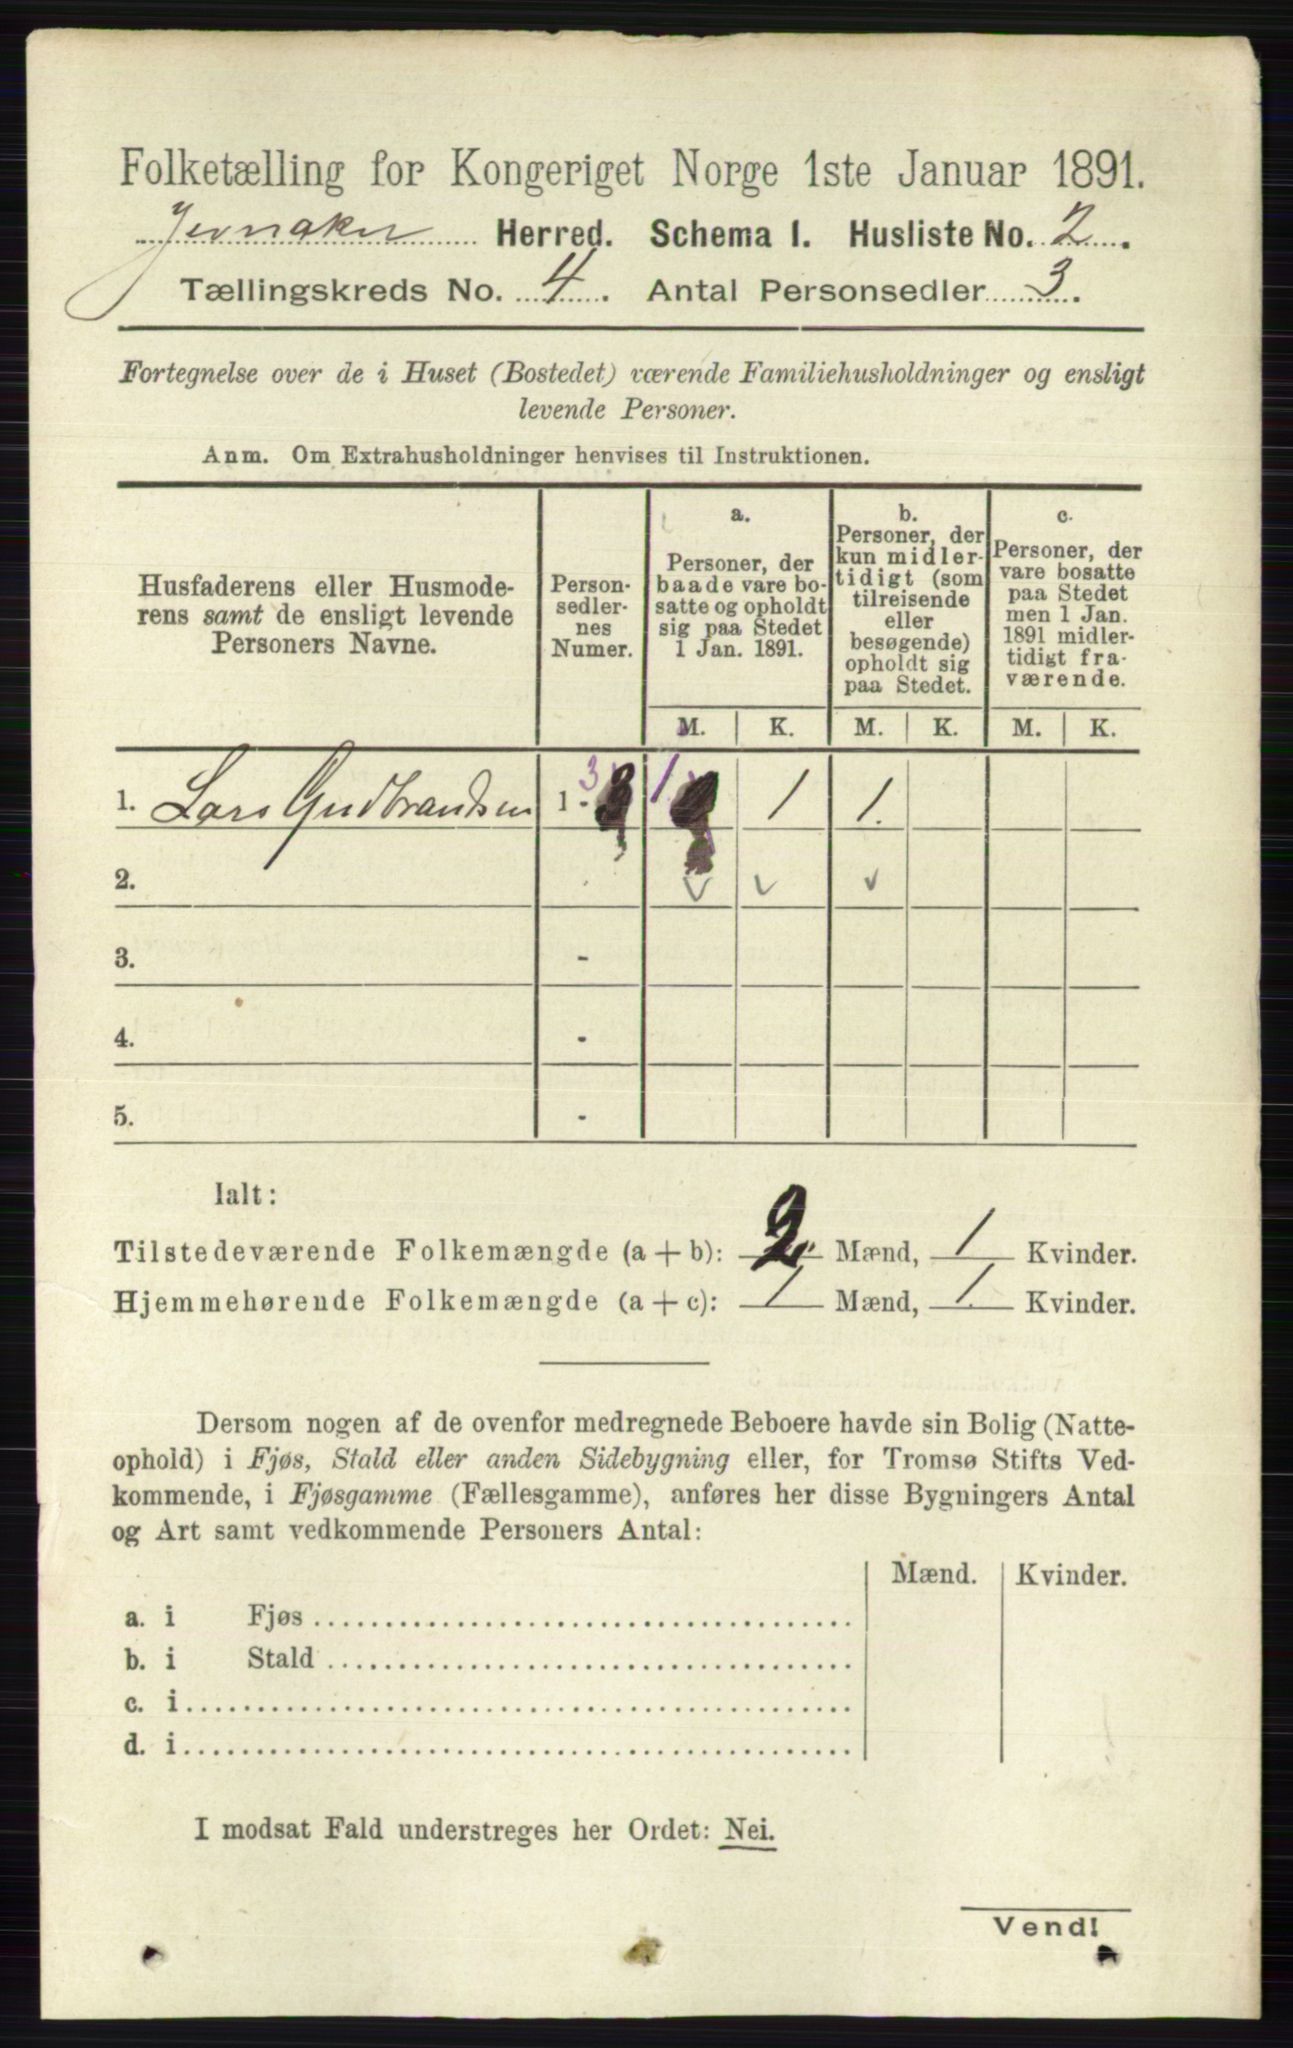 Folketælling for Kongeriget Norge 1ste Januar 1891.
Jevnaker Herred. Schema I. Husliste No. 2.
Tællingskreds No. 4. Antal Personsedler 3.
Fortegnelse over de i Huset (Bostedet) værende Familiehusholdninger og ensligt
levende Personer.
Anm. Om Extrahusholdninger henvises til Instruktionen.
Husfaderens eller Husmode-
rens samt de ensligt levende
Personers Navne.
Person-
sedler-
nes
Numer.
a.
Personer, der
baade vare bo-
satte og opholdt
sig paa Stedet
1 Jan. 1891.
b.
Personer, der
kun midler-
tidigt (som
tilreisende
eller
besøgende)
opholdt sig
paa Stedet.
c.
Personer, der
vare bosatte
paa Stedet
men 1 Jan.
1891 midler-
tidigt fra-
værende.
M. K. M. K. M. K.
1. Lars Gudbrandsen 1 - 3 1 1 1.
2.
3. -
4. -
5. -
Ialt:
Tilstedeværende Folkemængde (a + b): 2. Mænd, 1 Kvinder.
Hjemmehørende Folkemængde (a + c): 1 Mænd, 1. Kvinder.
Dersom nogen af de ovenfor medregnede Beboere havde sin Bolig (Natte-
ophold) i Fjøs, Stald eller anden Sidebygning eller, for Tromsø Stifts Ved-
kommende, i Fjøsgamme (Fællesgamme), anføres her disse Bygningers Antal
og Art samt vedkommende Personers Antal:
Mænd. Kvinder.
a. i Fjøs
b. i Stald
c. i
d. i
I modsat Fald understreges her Ordet: Nei.
Vend!